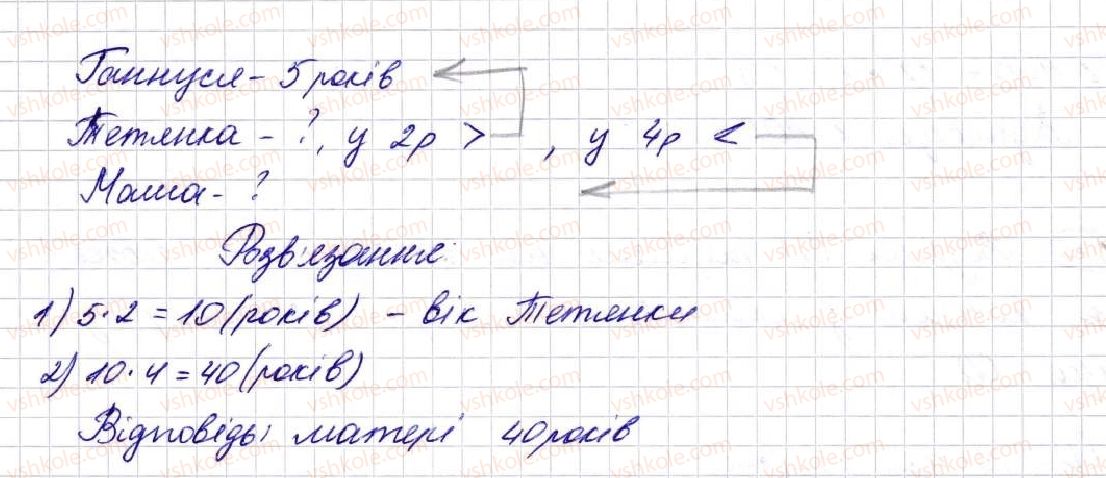 Ганнуся - 5 років
Тетянка - ?, у 2р >, у 4р <
Мама - ?
Розв'язання
1) 5·2 = 10 (років) - вік Тетянки
2) 10·4 = 40 (років)
Відповідь: матері 40 років